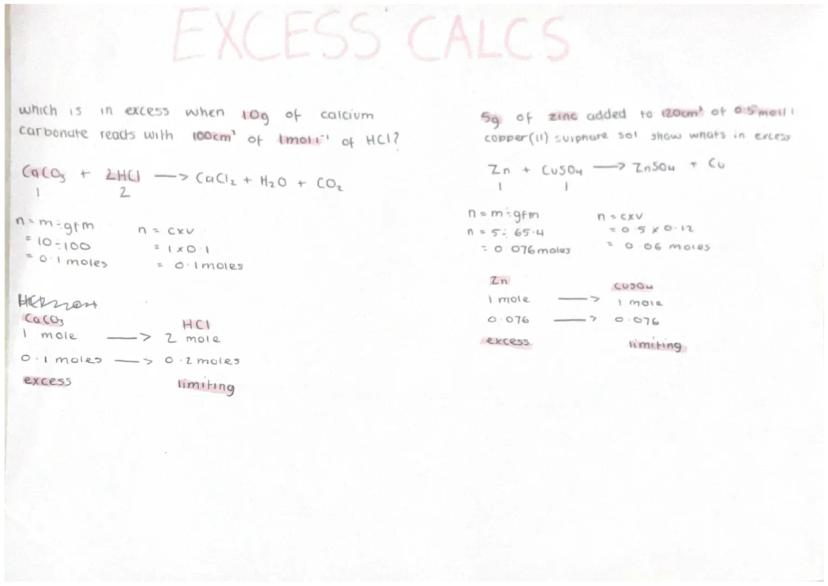 EXCESS CALCS
which is in excess when 10g of calcium
carbonate reacts with 100cm³ of 1mol l⁻¹ of HCl?
CaCO₃ + 2HCl —> CaCl₂ + H₂O + CO₂
1 2
n = m÷gfm n = cxv
= 10÷100 = 1 x 0.1
= 0.1 moles = 0.1 moles
CaCO₃ HCl
1 mole —> 2 mole
0.1 moles —> 0.2 moles
excess limiting
5g of zinc added to 120cm³ of 0.5 mol l
copper(II) sulphate sol show whats in excess
Zn + CuSO₄ —> ZnSO₄ + Cu
1 1
n = m÷gfm n = cxv
n = 5÷65.4 = 0.5 x 0.12
= 0.076 moles = 0.06 moles
Zn CuSO₄
1 mole —> 1 mole
0.076 —> 0.076
excess limiting